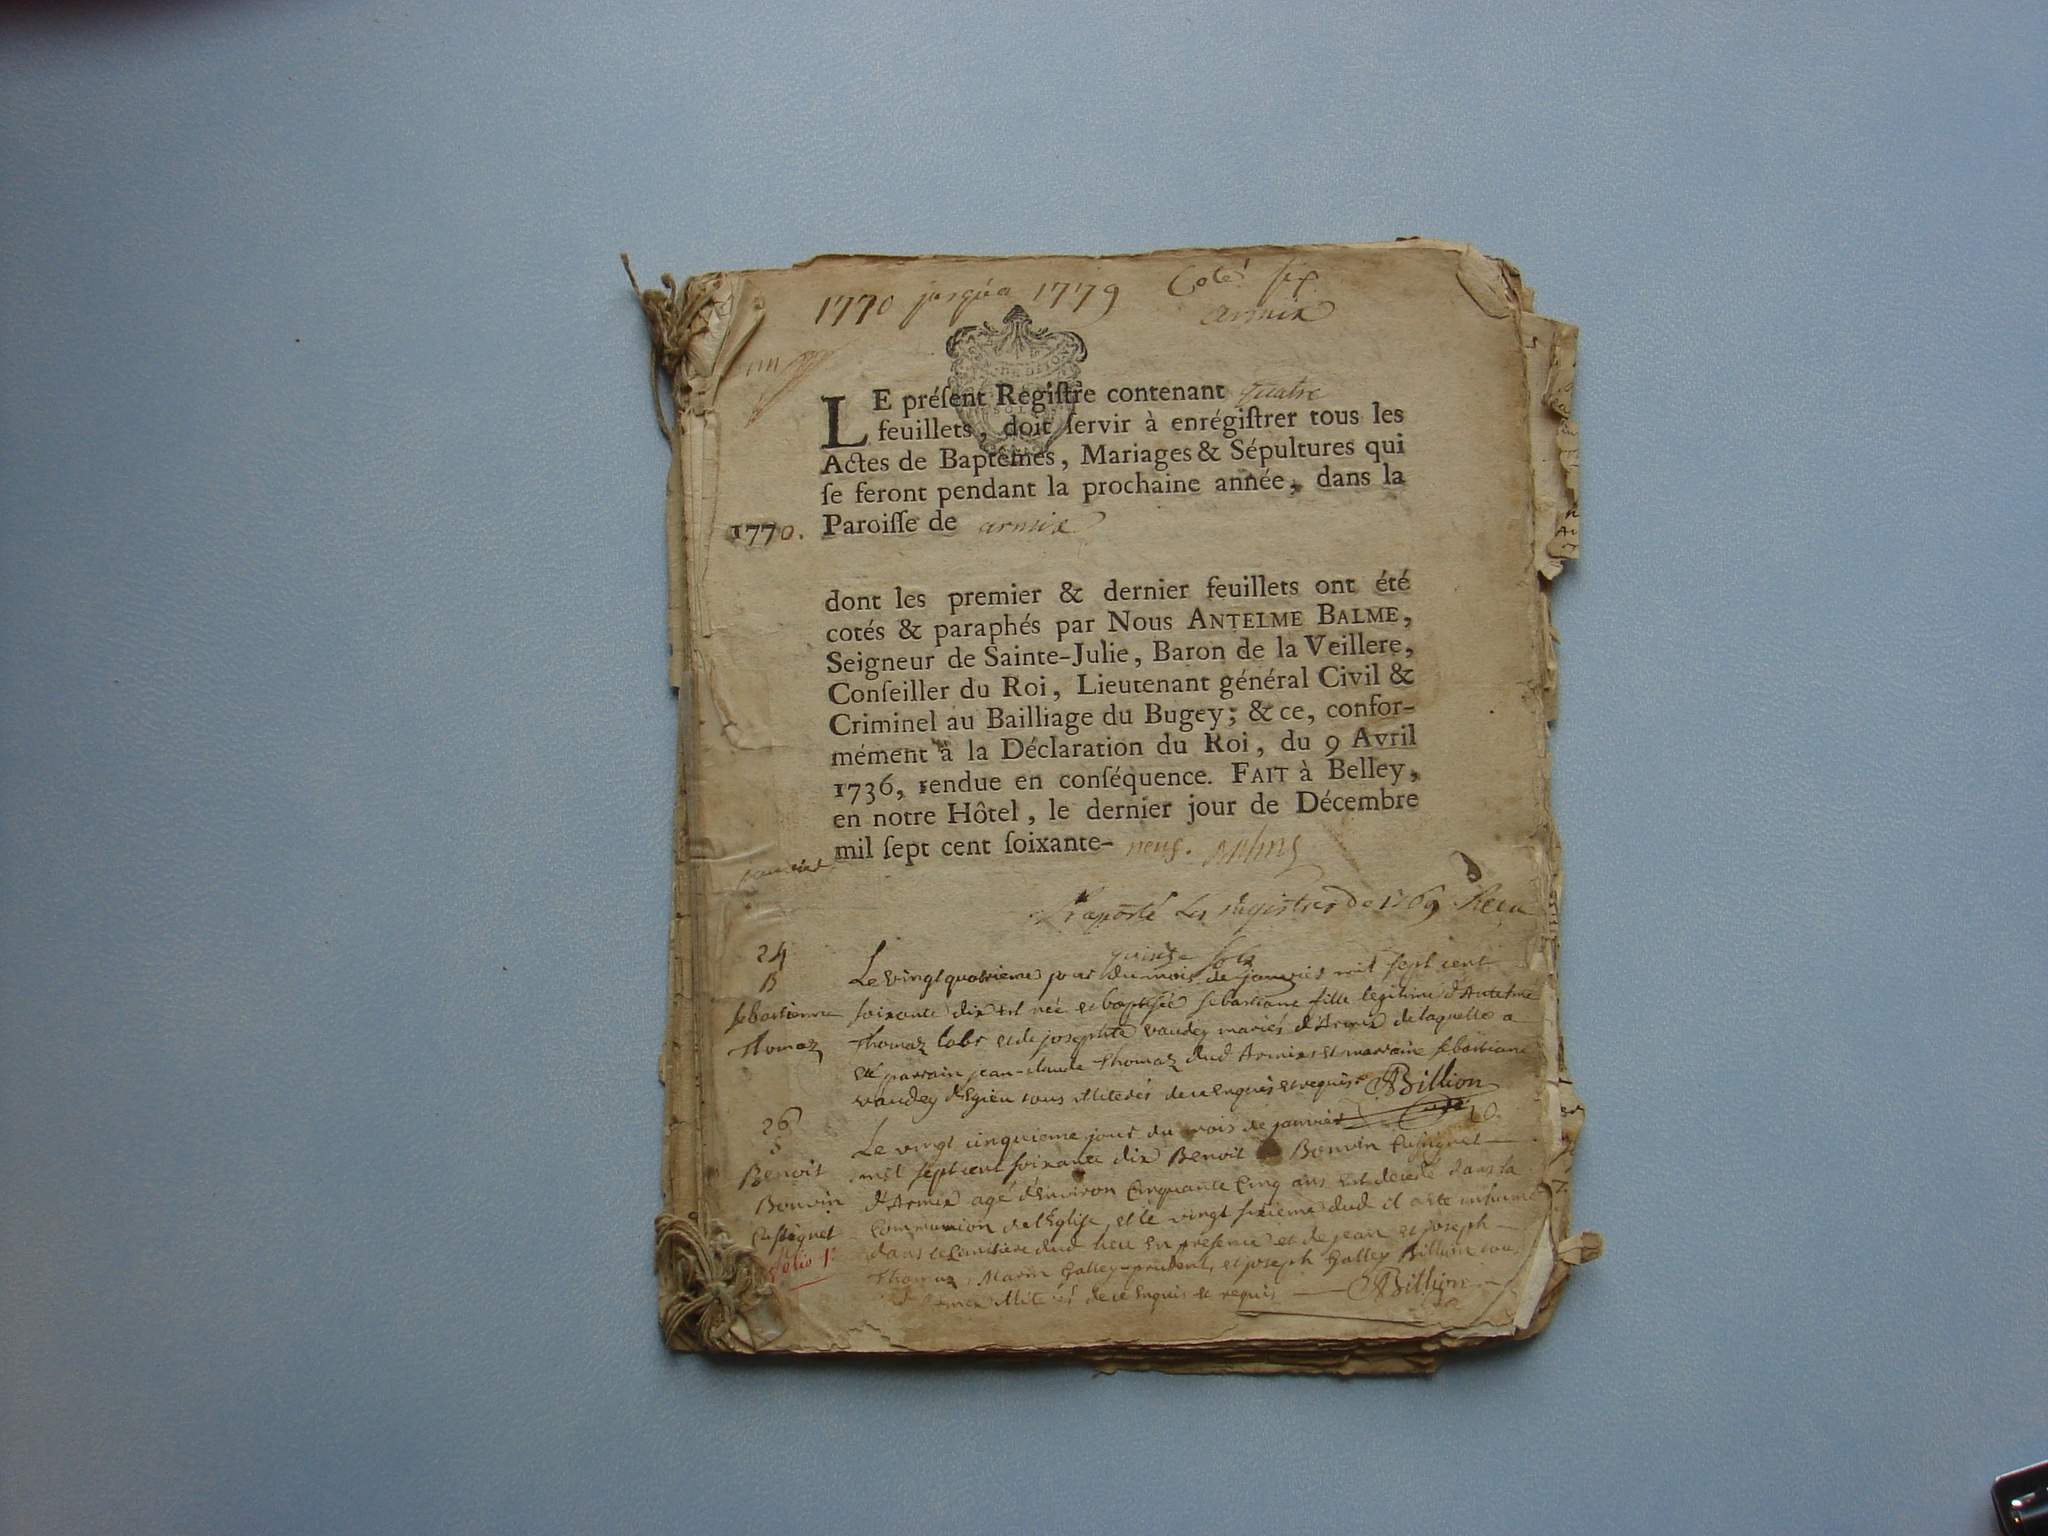 1770 jusqu'a 1779 Coté
armix
LE préſent Regiſtre contenant quatre
feuillets, doit ſervir à enrégiſtrer tous les
Actes de Baptêmes, Mariages & Sépultures qui
ſe feront pendant la prochaine année, dans la
1770. Paroiſſe de armix
dont les premier & dernier feuillets ont été
cotés & paraphés par Nous ANTELME BALME,
Seigneur de Sainte-Julie, Baron de la Veillere,
Conſeiller du Roi, Lieutenant général Civil &
Criminel au Bailliage du Bugey; & ce, confor-
mément à la Déclaration du Roi, du 9 Avril
1736, rendue en conſéquence. FAIT à Belley,
en notre Hôtel, le dernier jour de Décembre
mil ſept cent ſoixante- neuf.
janvier
Raporté les registres de 1769 Receu
quinze sols
24
B
sebastienne
Thomaz
Le vingt quatrieme jour du mois de janvier mil sept cent
soixante dix est née et baptisée sebastiane fille legitime d'Antelme
Thomaz labr et de josephte vaudey mariés d'Armix de laquelle a
eté parrain jean-claude Thomaz dud Armix et marraine sebastiane
vaudey tous illiterés de ce enquis et requis Billion
26
S
Benoit
Bonvin
folio 1r
Le vingt cinquieme jour du mois de janvier
mil sept cent soixante dix Benoit Bonvin
d'Armix agé d'environ cinquante cinq ans est decedé dans la
communion de l'Eglise, et le vingt sixieme dud il a eté inhumé
dans le cimetiere dud lieu en présence et de jean et joseph
Thomaz, Marin Galley-prudent, et joseph Galley Billion tous
illiterés de ce enquis et requis Billion